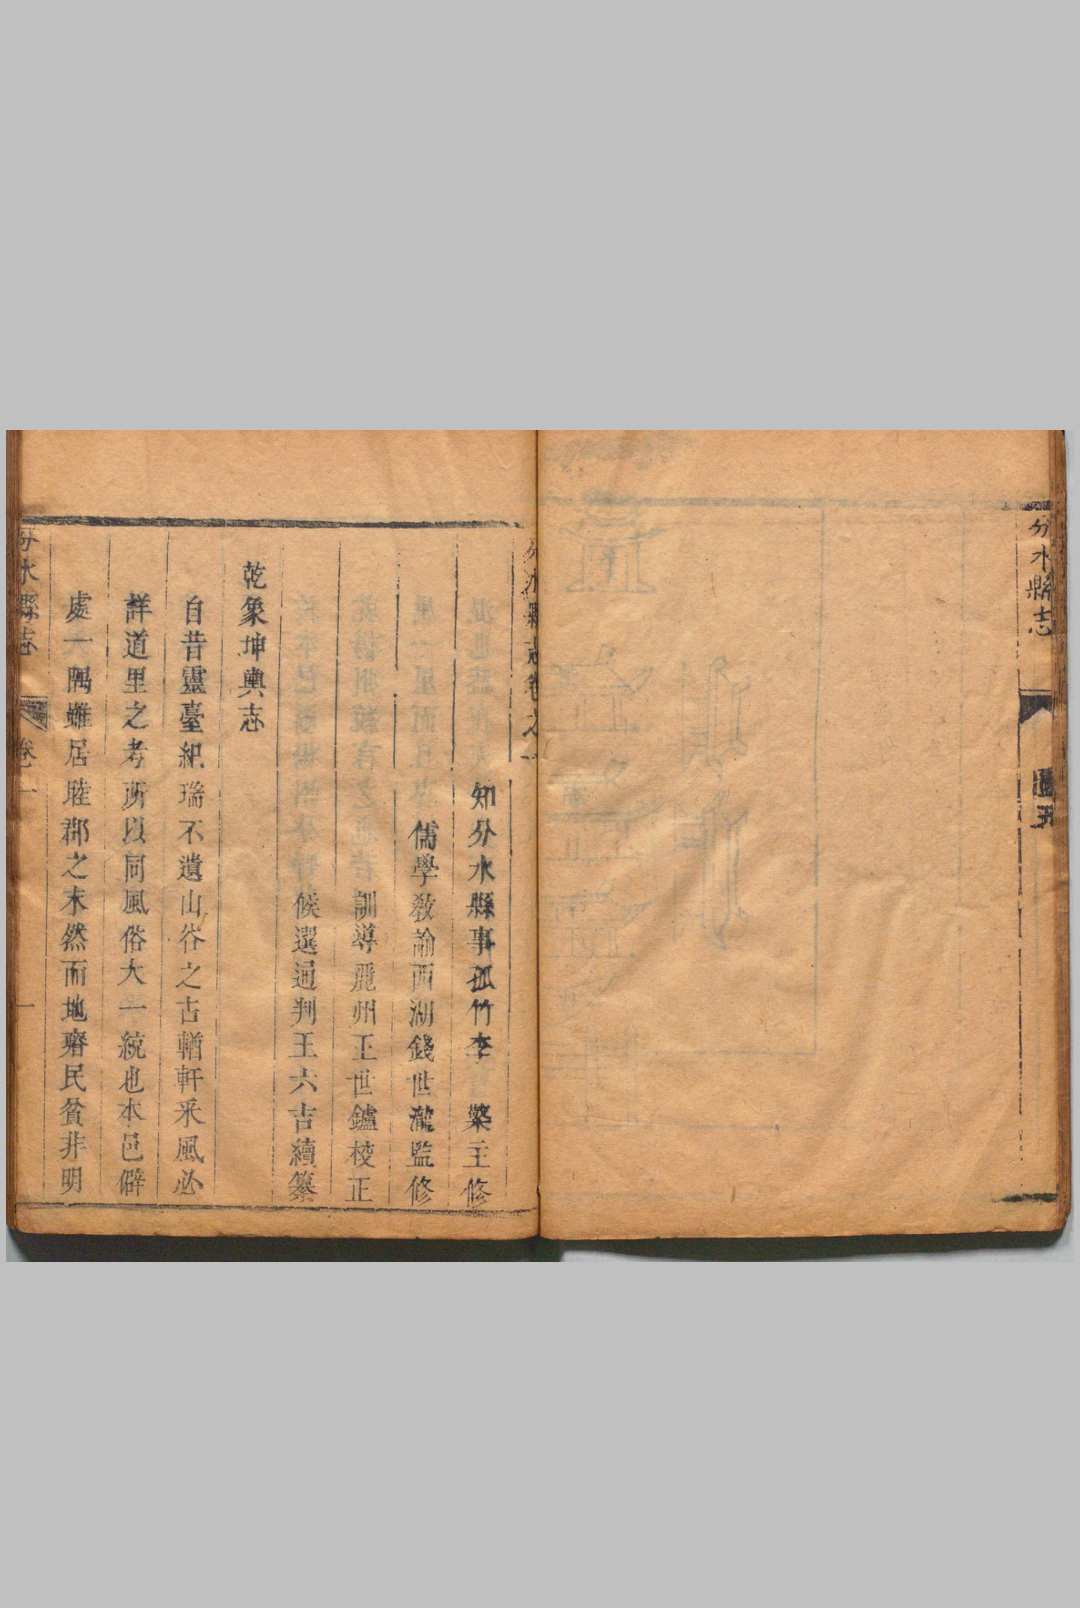 分水縣志
分水縣志卷之一
知分水縣事孤竹李 槃主修
儒學敎諭西湖錢世瀧監修
訓導麗州王世鑪校正
候選通判王六吉續纂
乾象坤輿志
自昔靈臺紀瑞不遺山谷之占輶軒采風必
詳道里之考所以同風俗大一統也本邑僻
處一隅雖居睦郡之末然而地瘠民貧非明
分水縣志 卷一 一